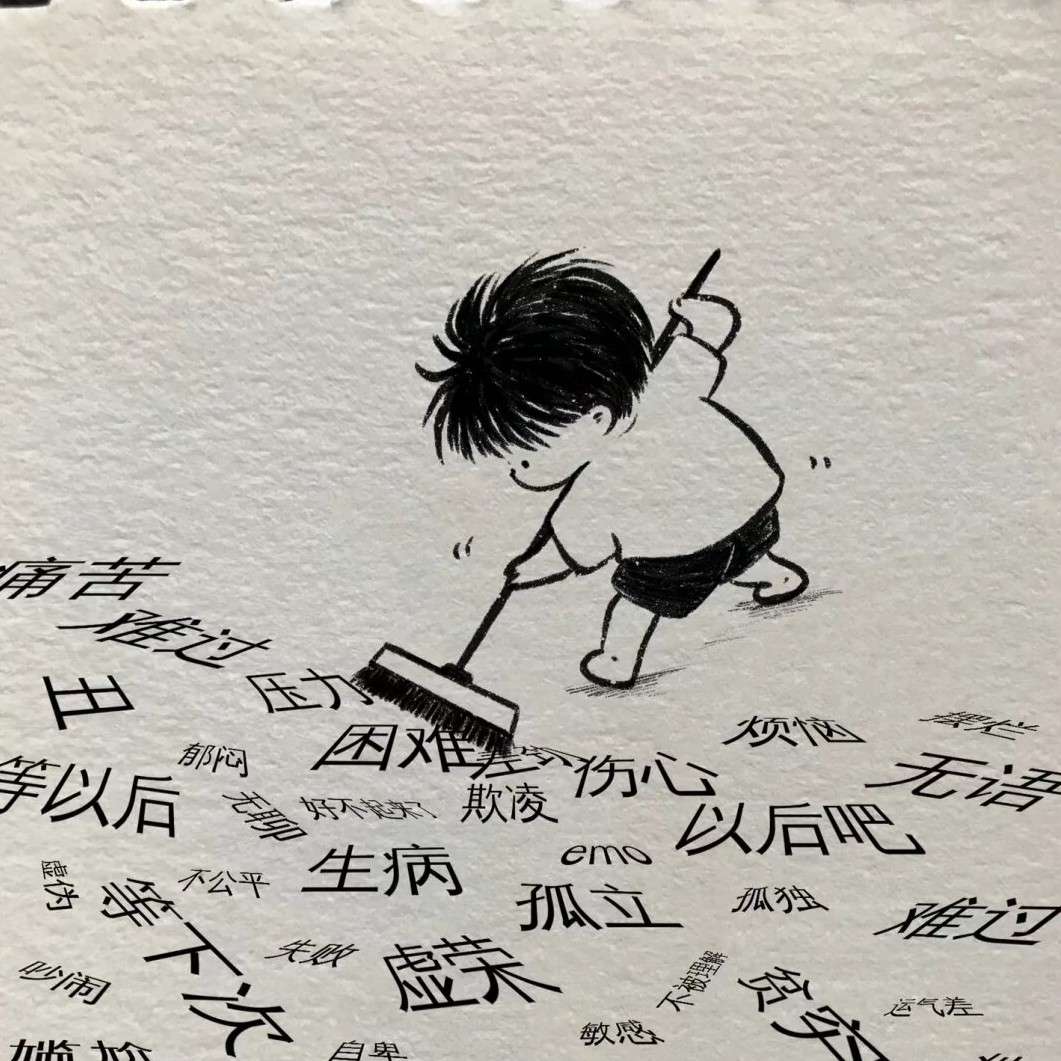 痛苦
难过
丑
压力
困难
伤心
烦恼
摆烂
郁闷
等以后
无聊
好不起来了
欺凌
无语
以后吧
生病
emo
虚伪
不公平
等下次
孤立
孤独
难过
失败
虚荣
吵闹
不被理解
贫穷
运气差
敏感
自卑